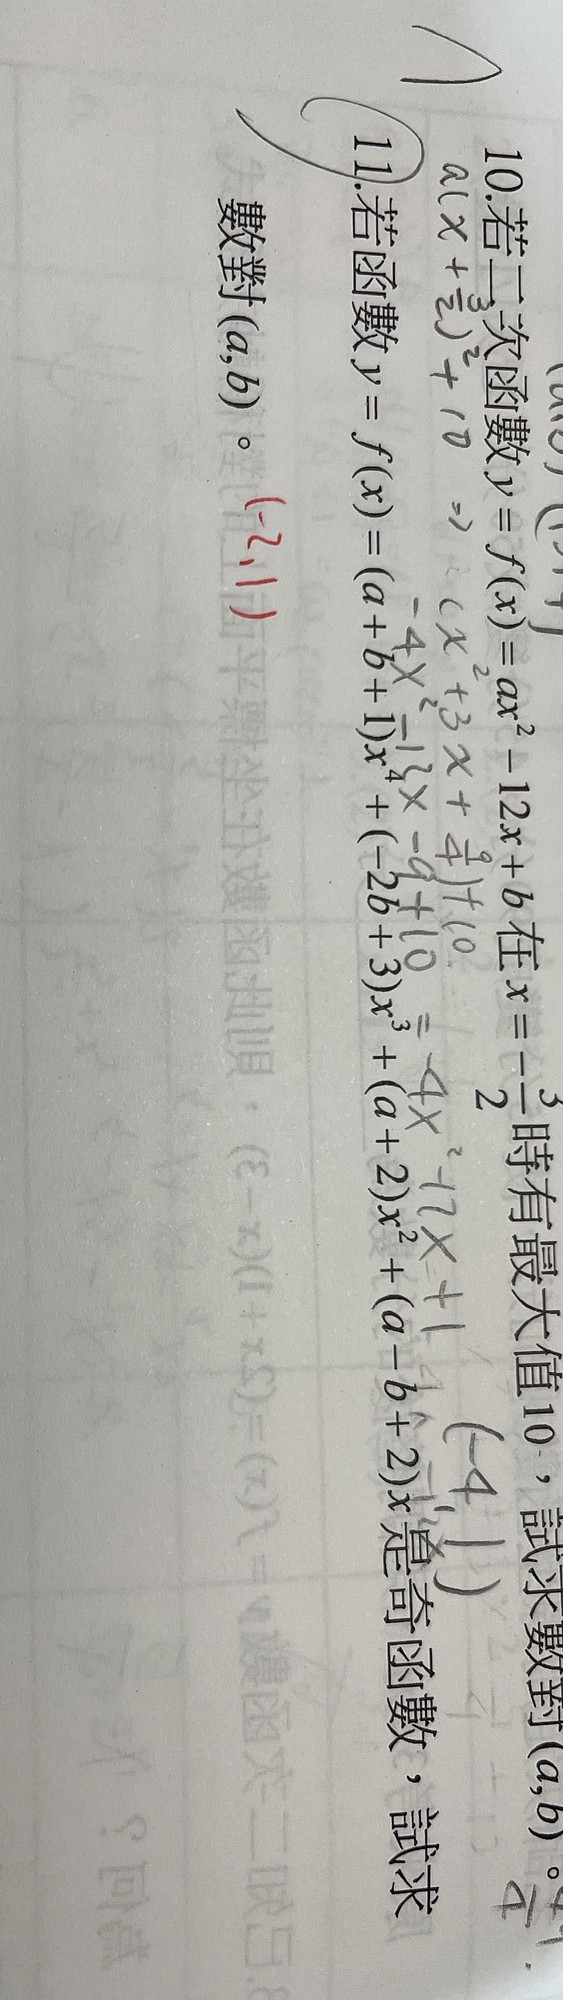 10.若二次函數y=f(x)=ax²-12x+b在x=-3/2時有最大值10，試求數對(a,b)。
a(x+3/2)²+10 ⇒ (x²+3x+9/4)+10
(-4,1)
-4x²-12x-9+10=-4x²-12x+1
11.若函數y=f(x)=(a+b+1)x⁴+(-2b+3)x³+(a+2)x²+(a-b+2)x是奇函數，試求
數對(a,b)。 (-2,1)